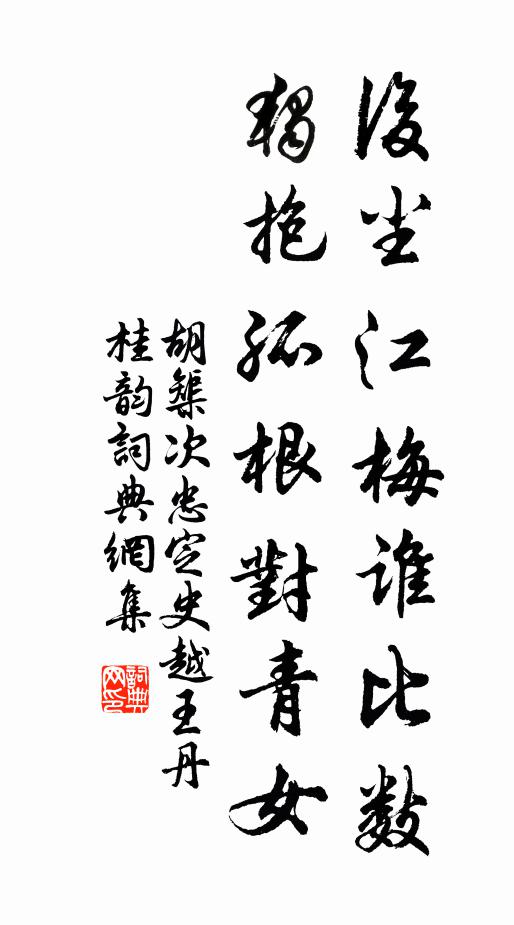 後尘江梅谁比数
獨抱孤根對青女
胡榘次忠定史越王丹
桂韵詞典網集
詞典网印